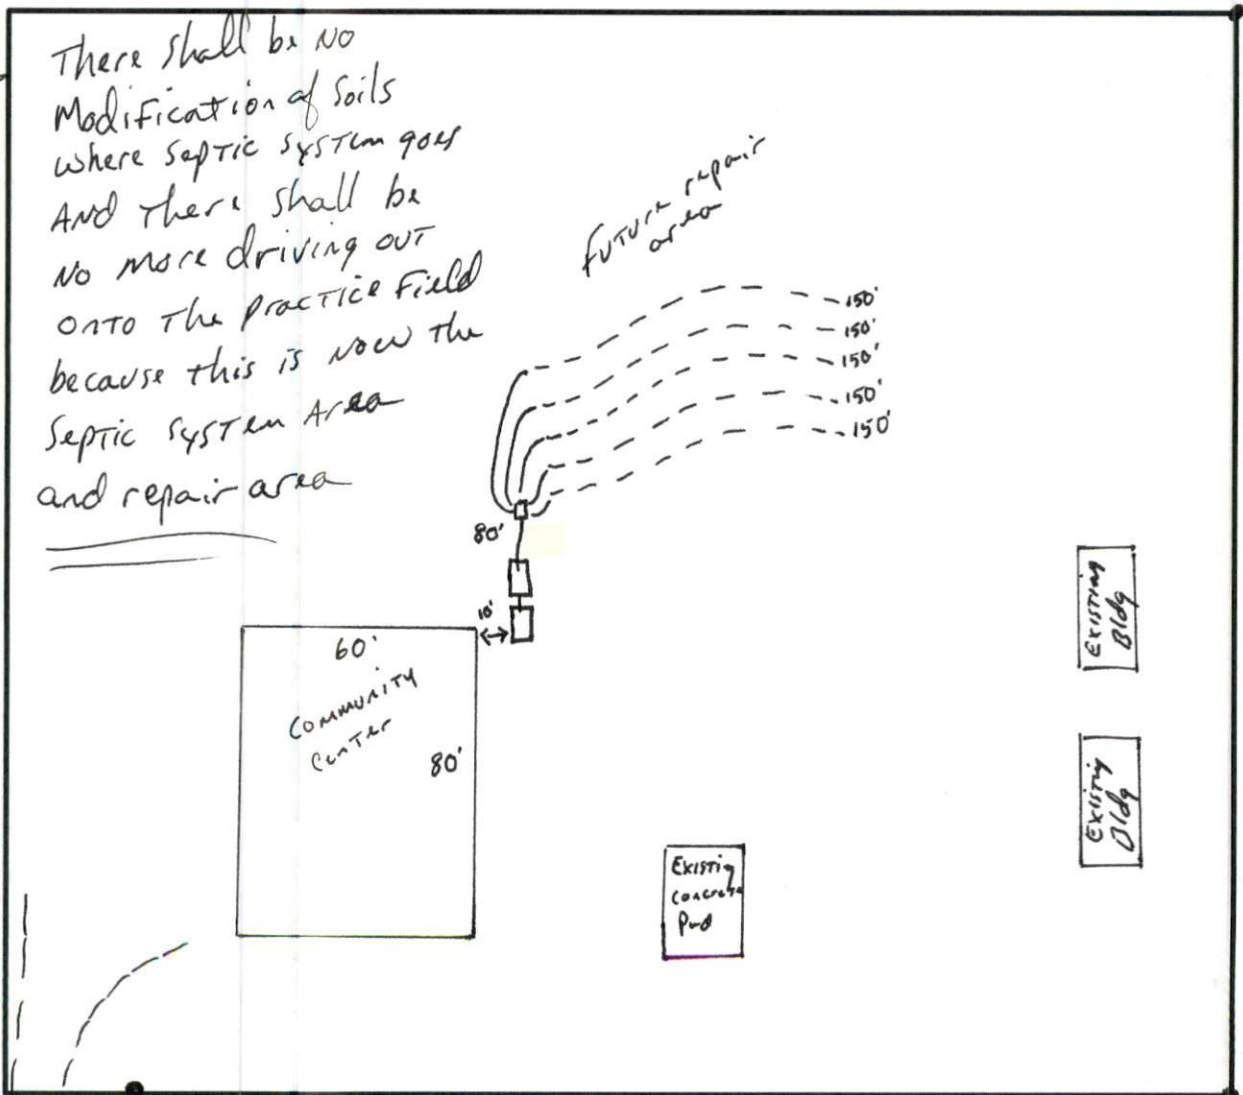 There shall be NO
Modification of Soils
where septic system goes
AND there shall be
NO more driving out
onto the practice Field
because this is now the
Septic system Area
and repair area
future repair
area
150'
150'
150'
150'
150'
80'
10'
60'
Community
Center
80'
Existing
Bldg
Existing
Bldg
Existing
Concrete
Pad